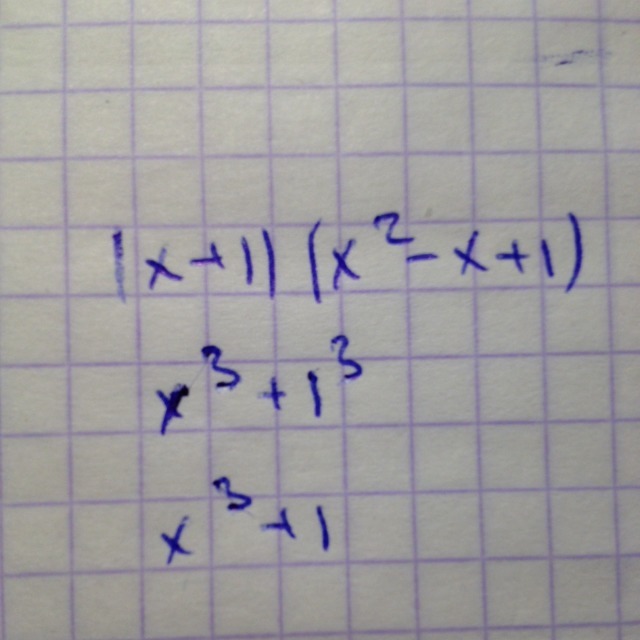 (x+1)(x²-x+1)
x³+1³
x³+1